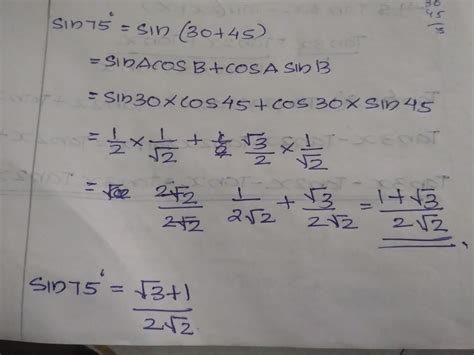 30
45
3
sin75° = sin (30+45)
= sinAcosB+cosA sinB
= sin30×cos45+cos30×sin45
= 1/2 × 1/√2 + √3/2 × 1/√2
= 2√2/2√2 1/2√2 + √3/2√2 = 1+√3/2√2
sin75° = √3+1/2√2